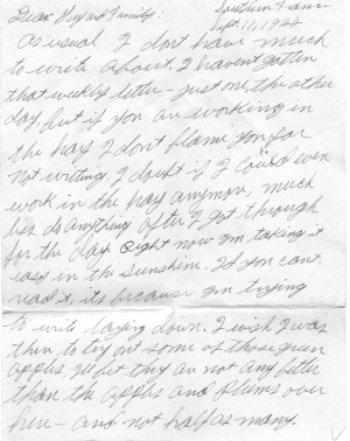 Southern France
Sept. 11, 1944
Dear Guy and Family:
As usual I dont have much
to write about, I havent gotten
that weekly letter - just one, the other
day, but if you are working in
the hay I dont blame you for
not writing. I doubt if I could even
work in the hay anymore, much
less do anything after I got through
for the day. Right now Im taking it
easy in the sunshine. If you cant
read it, its because Im trying
to write laying down. I wish I was
there to try out some of those green
apples, Ill bet they are not any better
than the apples and plums over
here - and not half as many.